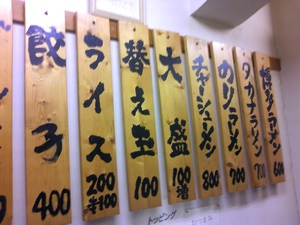 博多ラーメン 600
タカナラーメン 700
のりラーメン 700
チャーシューメン 800
大盛 100増
替え玉 100
ライス 200 半100
餃子 400
トッピング